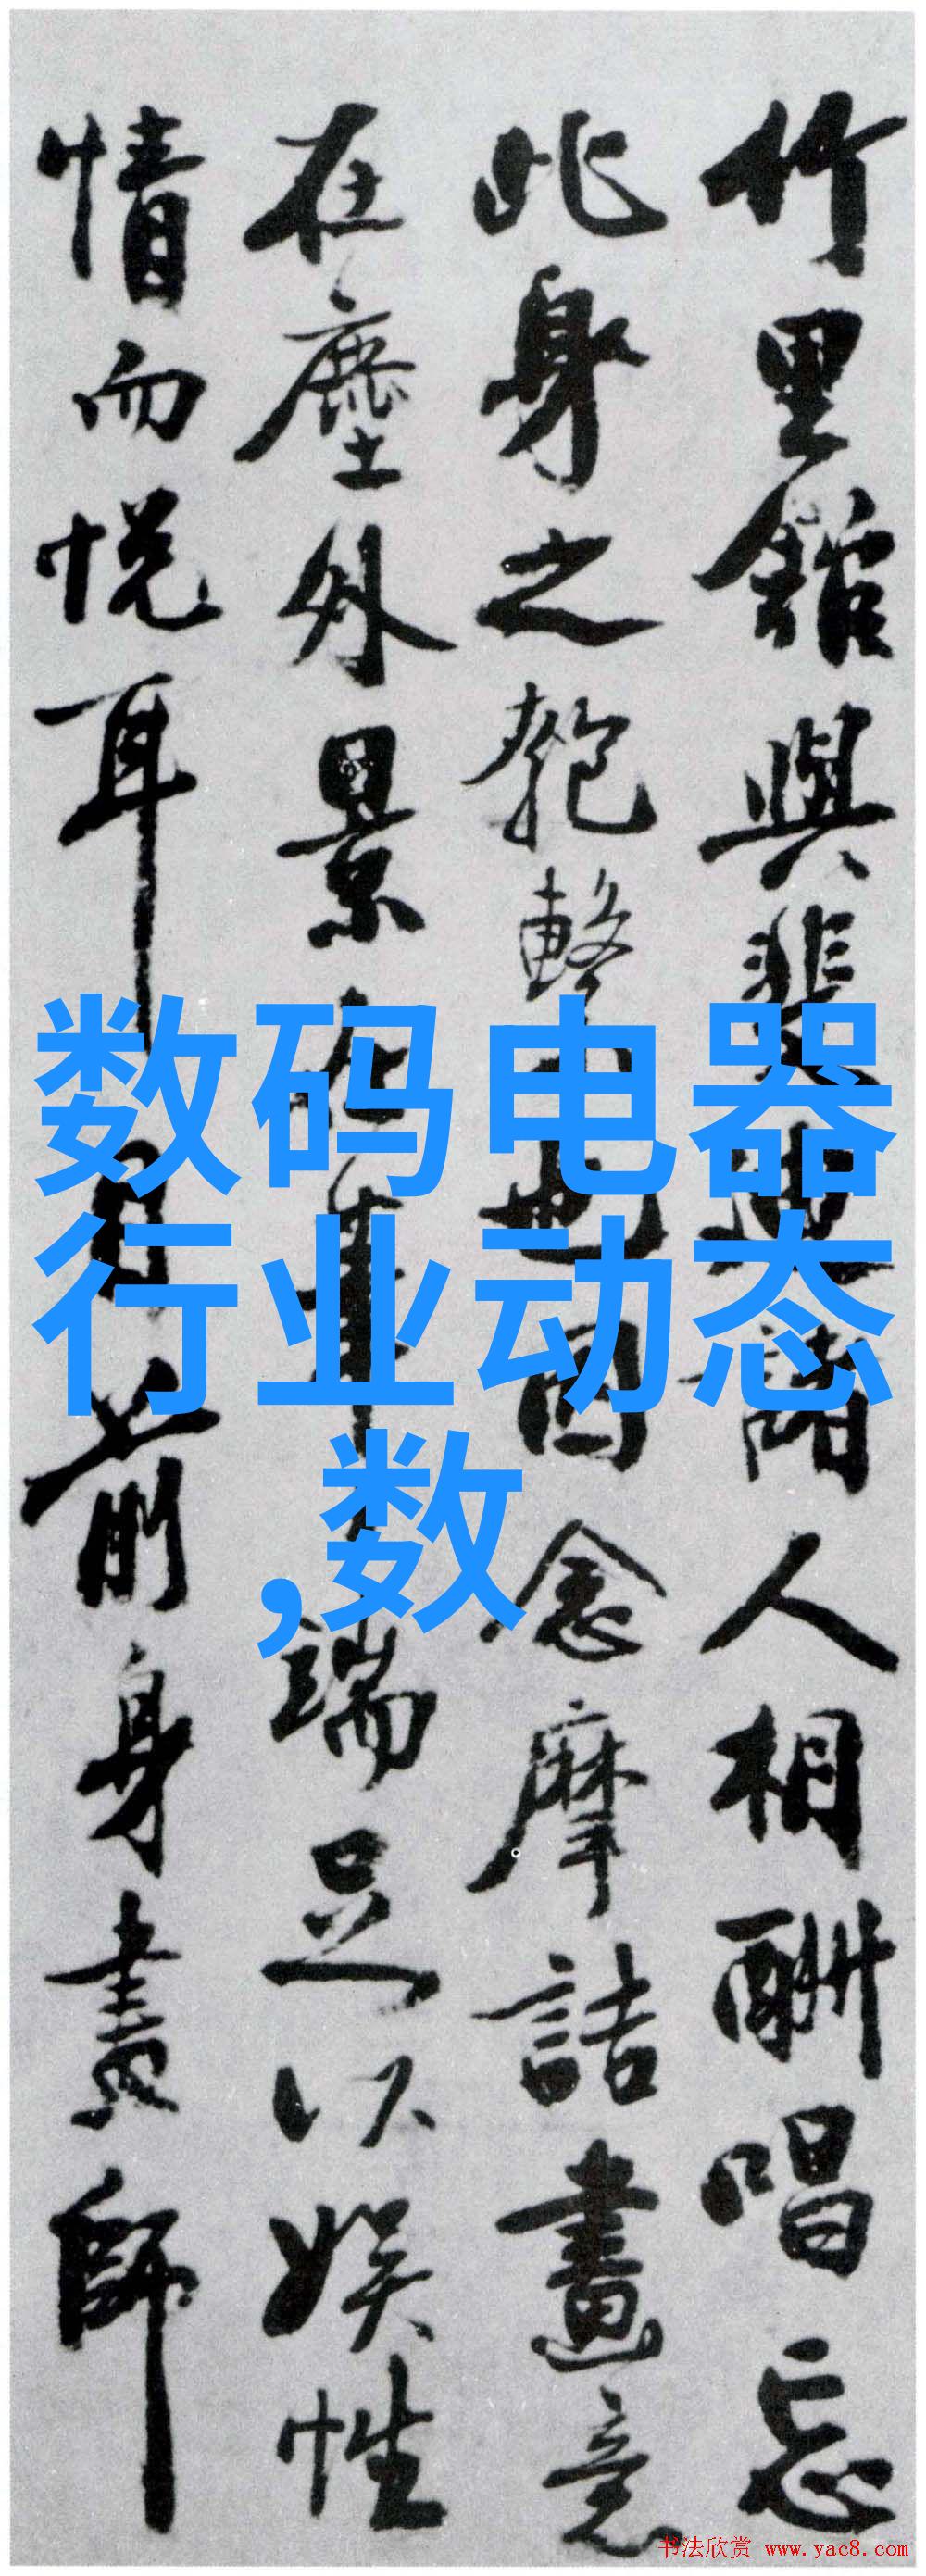 竹里館與裴迪諸人相酬唱忘
此身之匏繫也因念摩詰畫意
在塵外景在筆端足以娛性
情而悦耳目前身畫師
数码电器
行业动态
,数
书法欣赏 www.yac8.com